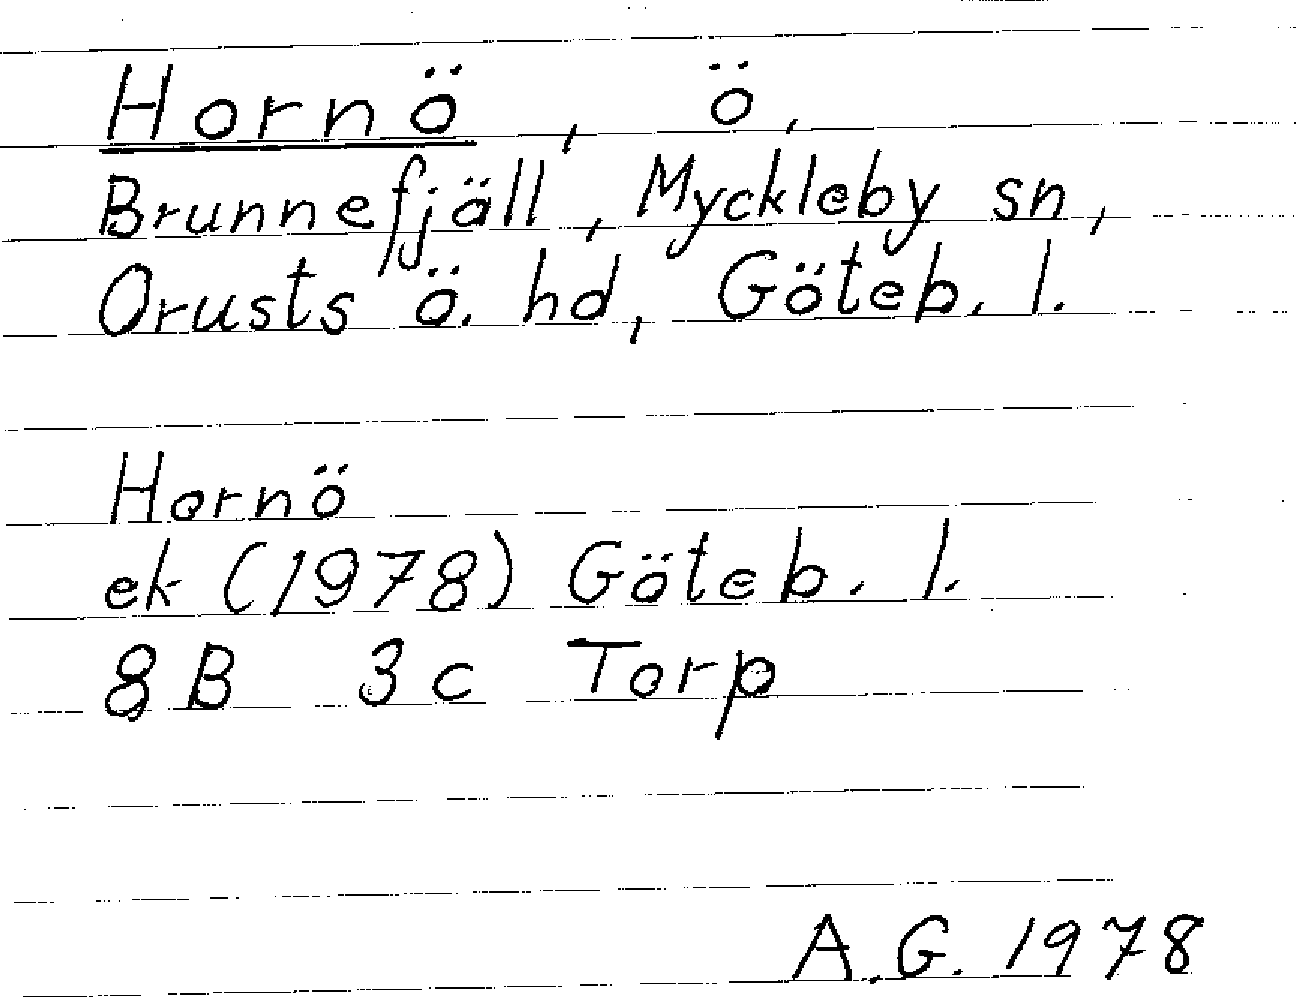 Hornö, ö,
Brunnefjäll, Myckleby sn,
Orusts ö. hd, Göteb. l.
Hornö
ek (1978) Göteb. l.
8B 3c Torp
A.G. 1978